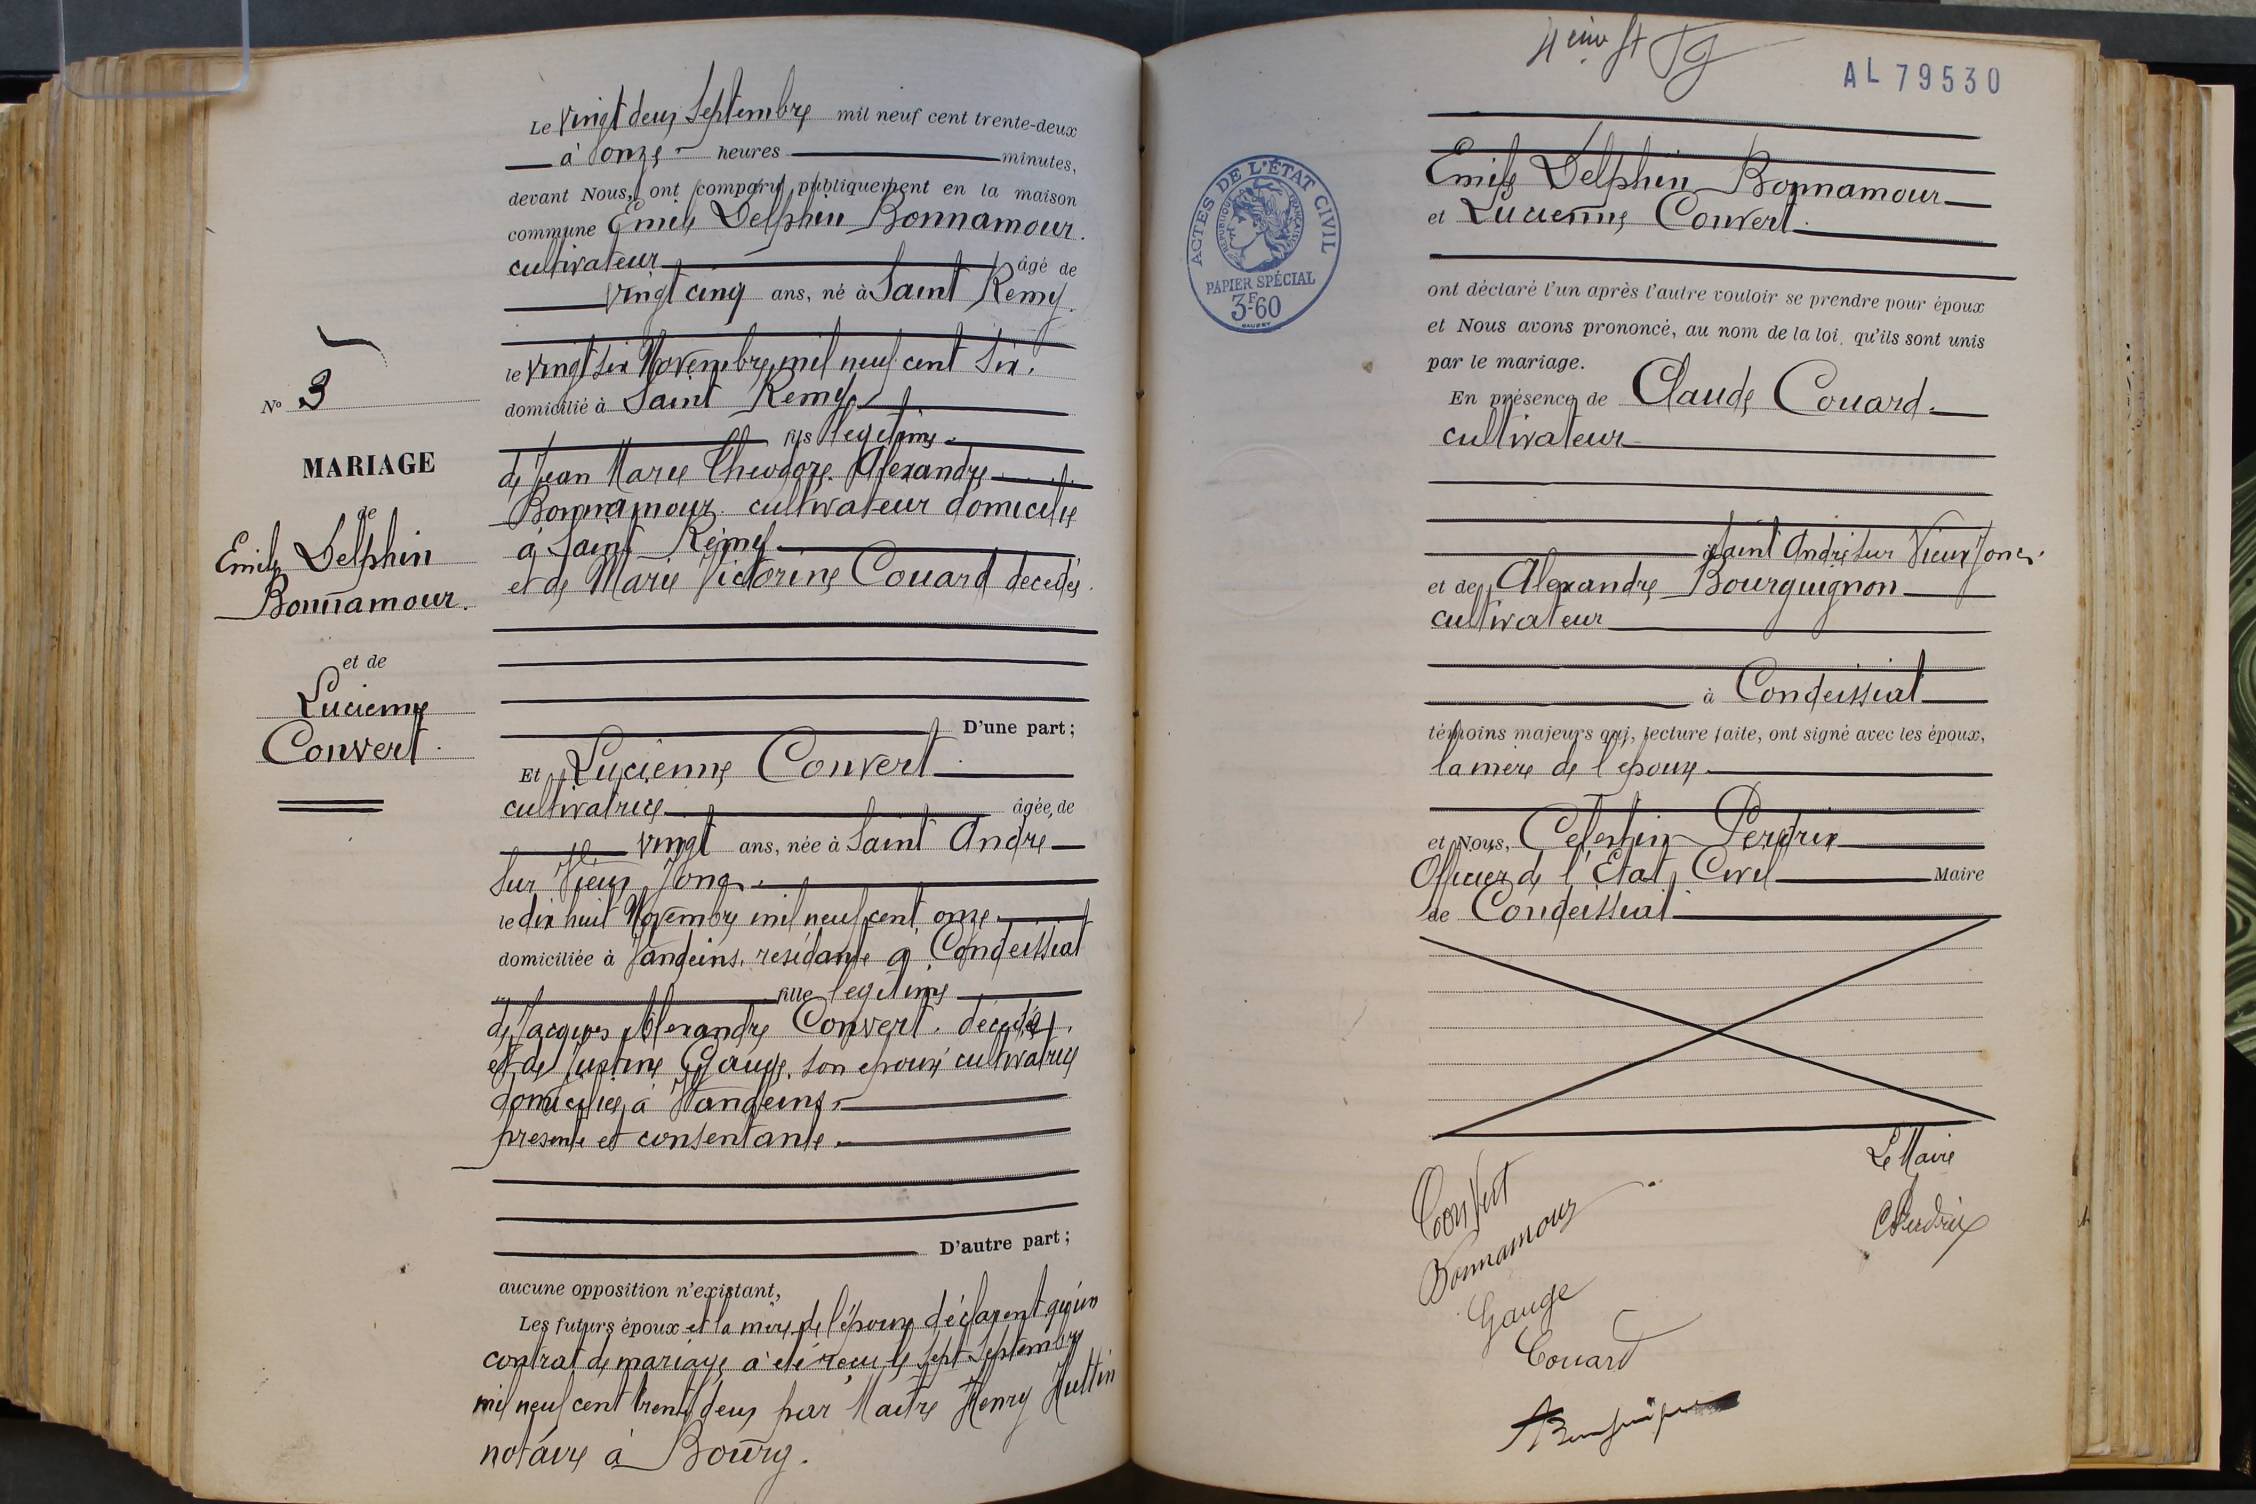 Le vingt deux Septembre mil neuf cent trente-deux
à onze heures minutes,
devant Nous, ont comparu publiquement en la maison
commune Emile Delphin Bonnamour.
cultivateur âgé de
vingt cinq ans, né à Saint Remy.
le vingt six Novembre mil neuf cent six.
domicilié à Saint Remy
fils légitime
de Jean Marie Théodore Alexandre
Bonnamour cultivateur domicilié
à Saint Rémy
et de Marie Victorine Couard décédée.
D'une part;
Et Lucienne Convert
cultivatrice âgée de
vingt ans, née à Saint André
sur Vieux Jonc.
le dix huit Novembre mil neuf cent onze.
domiciliée à Vandeins, résidante à Condeissiat
fille légitime
de Jacques Alexandre Convert. décédé.
et de Justine Gauge, son épouse cultivatrice
domiciliée à Vandeins.
présente et consentante.
D'autre part;
aucune opposition n'existant,
Les futurs époux et la mère de l'épouse déclarent qu'un
contrat de mariage a été reçu le sept Septembre
mil neuf cent trente deux par Maître Henry Huttin
notaire à Bourg.
No 3
MARIAGE
de
Emile Delphin
Bonnamour.
et de
Lucienne
Convert.
AL 79530
ACTES DE L'ÉTAT CIVIL
RÉPUBLIQUE FRANÇAISE
PAPIER SPÉCIAL
3F60
Emile Delphin Bonnamour
et Lucienne Convert.
ont déclaré l'un après l'autre vouloir se prendre pour époux
et Nous avons prononcé, au nom de la loi, qu'ils sont unis
par le mariage.
En présence de Claude Couard.
cultivateur
à Saint André sur Vieux Jonc.
et de Alexandre Bourguignon
cultivateur
à Condeissiat
témoins majeurs qui, lecture faite, ont signé avec les époux,
la mère de l'épouse.
et Nous, Celestin Perdrix
Officier de l'Etat Civil Maire
de Condeissiat
Le Maire
Convert
Bonnamour
CPerdrix
Gauge
Couard